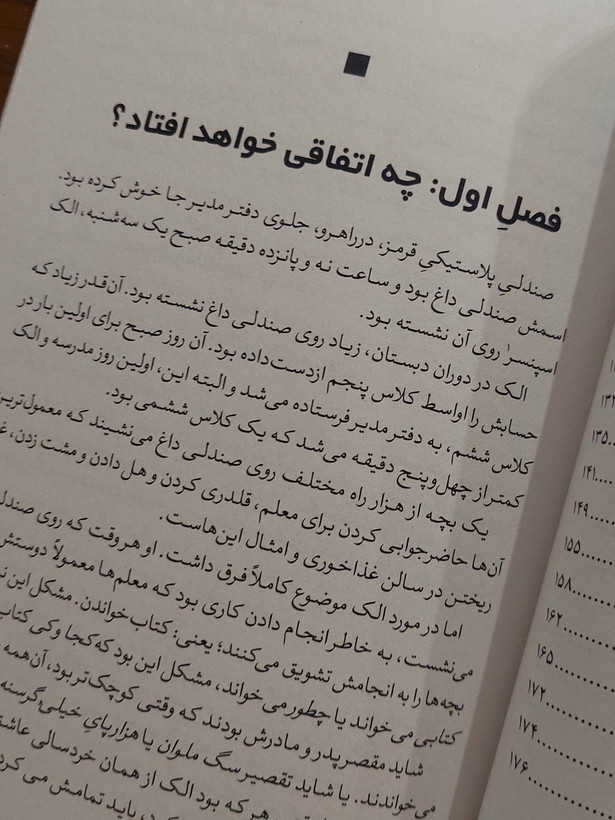 فصلِ اول: چه اتفاقی خواهد افتاد؟
صندلیِ پلاستیکیِ قرمز، درراهرو، جلوی دفتر مدیر جا خوش کرده بود.
اسمش صندلی داغ بود و ساعت نه و پانزده دقیقه صبح یک سه‌شنبه، الک
اسپنسر¹ روی آن نشسته بود.
الک در دوران دبستان، زیاد روی صندلی داغ نشسته بود. آن‌قدر زیاد که
حسابش را اواسط کلاس پنجم ازدست‌داده بود. آن روز صبح برای اولین بار در
کلاس ششم، به دفتر مدیر فرستاده می‌شد و البته این، اولین روز مدرسه و الک
کمتر از چهل‌وپنج دقیقه می‌شد که یک کلاس ششمی بود.
یک بچه از هزار راه مختلف روی صندلی داغ می‌نشیند که معمول‌ترین
آن‌ها حاضرجوابی کردن برای معلم، قلدری کردن و هل دادن و مشت زدن،
ریختن در سالن غذاخوری و امثال این‌هاست.
اما در مورد الک موضوع کاملاً فرق داشت. او هروقت که روی
می‌نشست، به خاطر انجام دادن کاری بود که معلم‌ها معمولاً
بچه‌ها را به انجامش تشویق می‌کنند؛ یعنی: کتاب‌خواندن. مشکل این
کتابی می‌خواند یا چطور می‌خواند، مشکل این بود که کجا و کی
شاید مقصر پدر و مادرش بودند که وقتی کوچک‌تر بود، آن‌همه
می‌خواندند. یا شاید تقصیر سگ ملوان یا هزارپایِ خیلی گرسنه
هر که بود الک از همان خردسالی
باید تمامش می
۱۳۵
۱۴۱
۱۴۹
۱۵۵
۱۵۸
۱۶۲
۱۶۵
۱۷۲
۱۷۴
۱۷۶